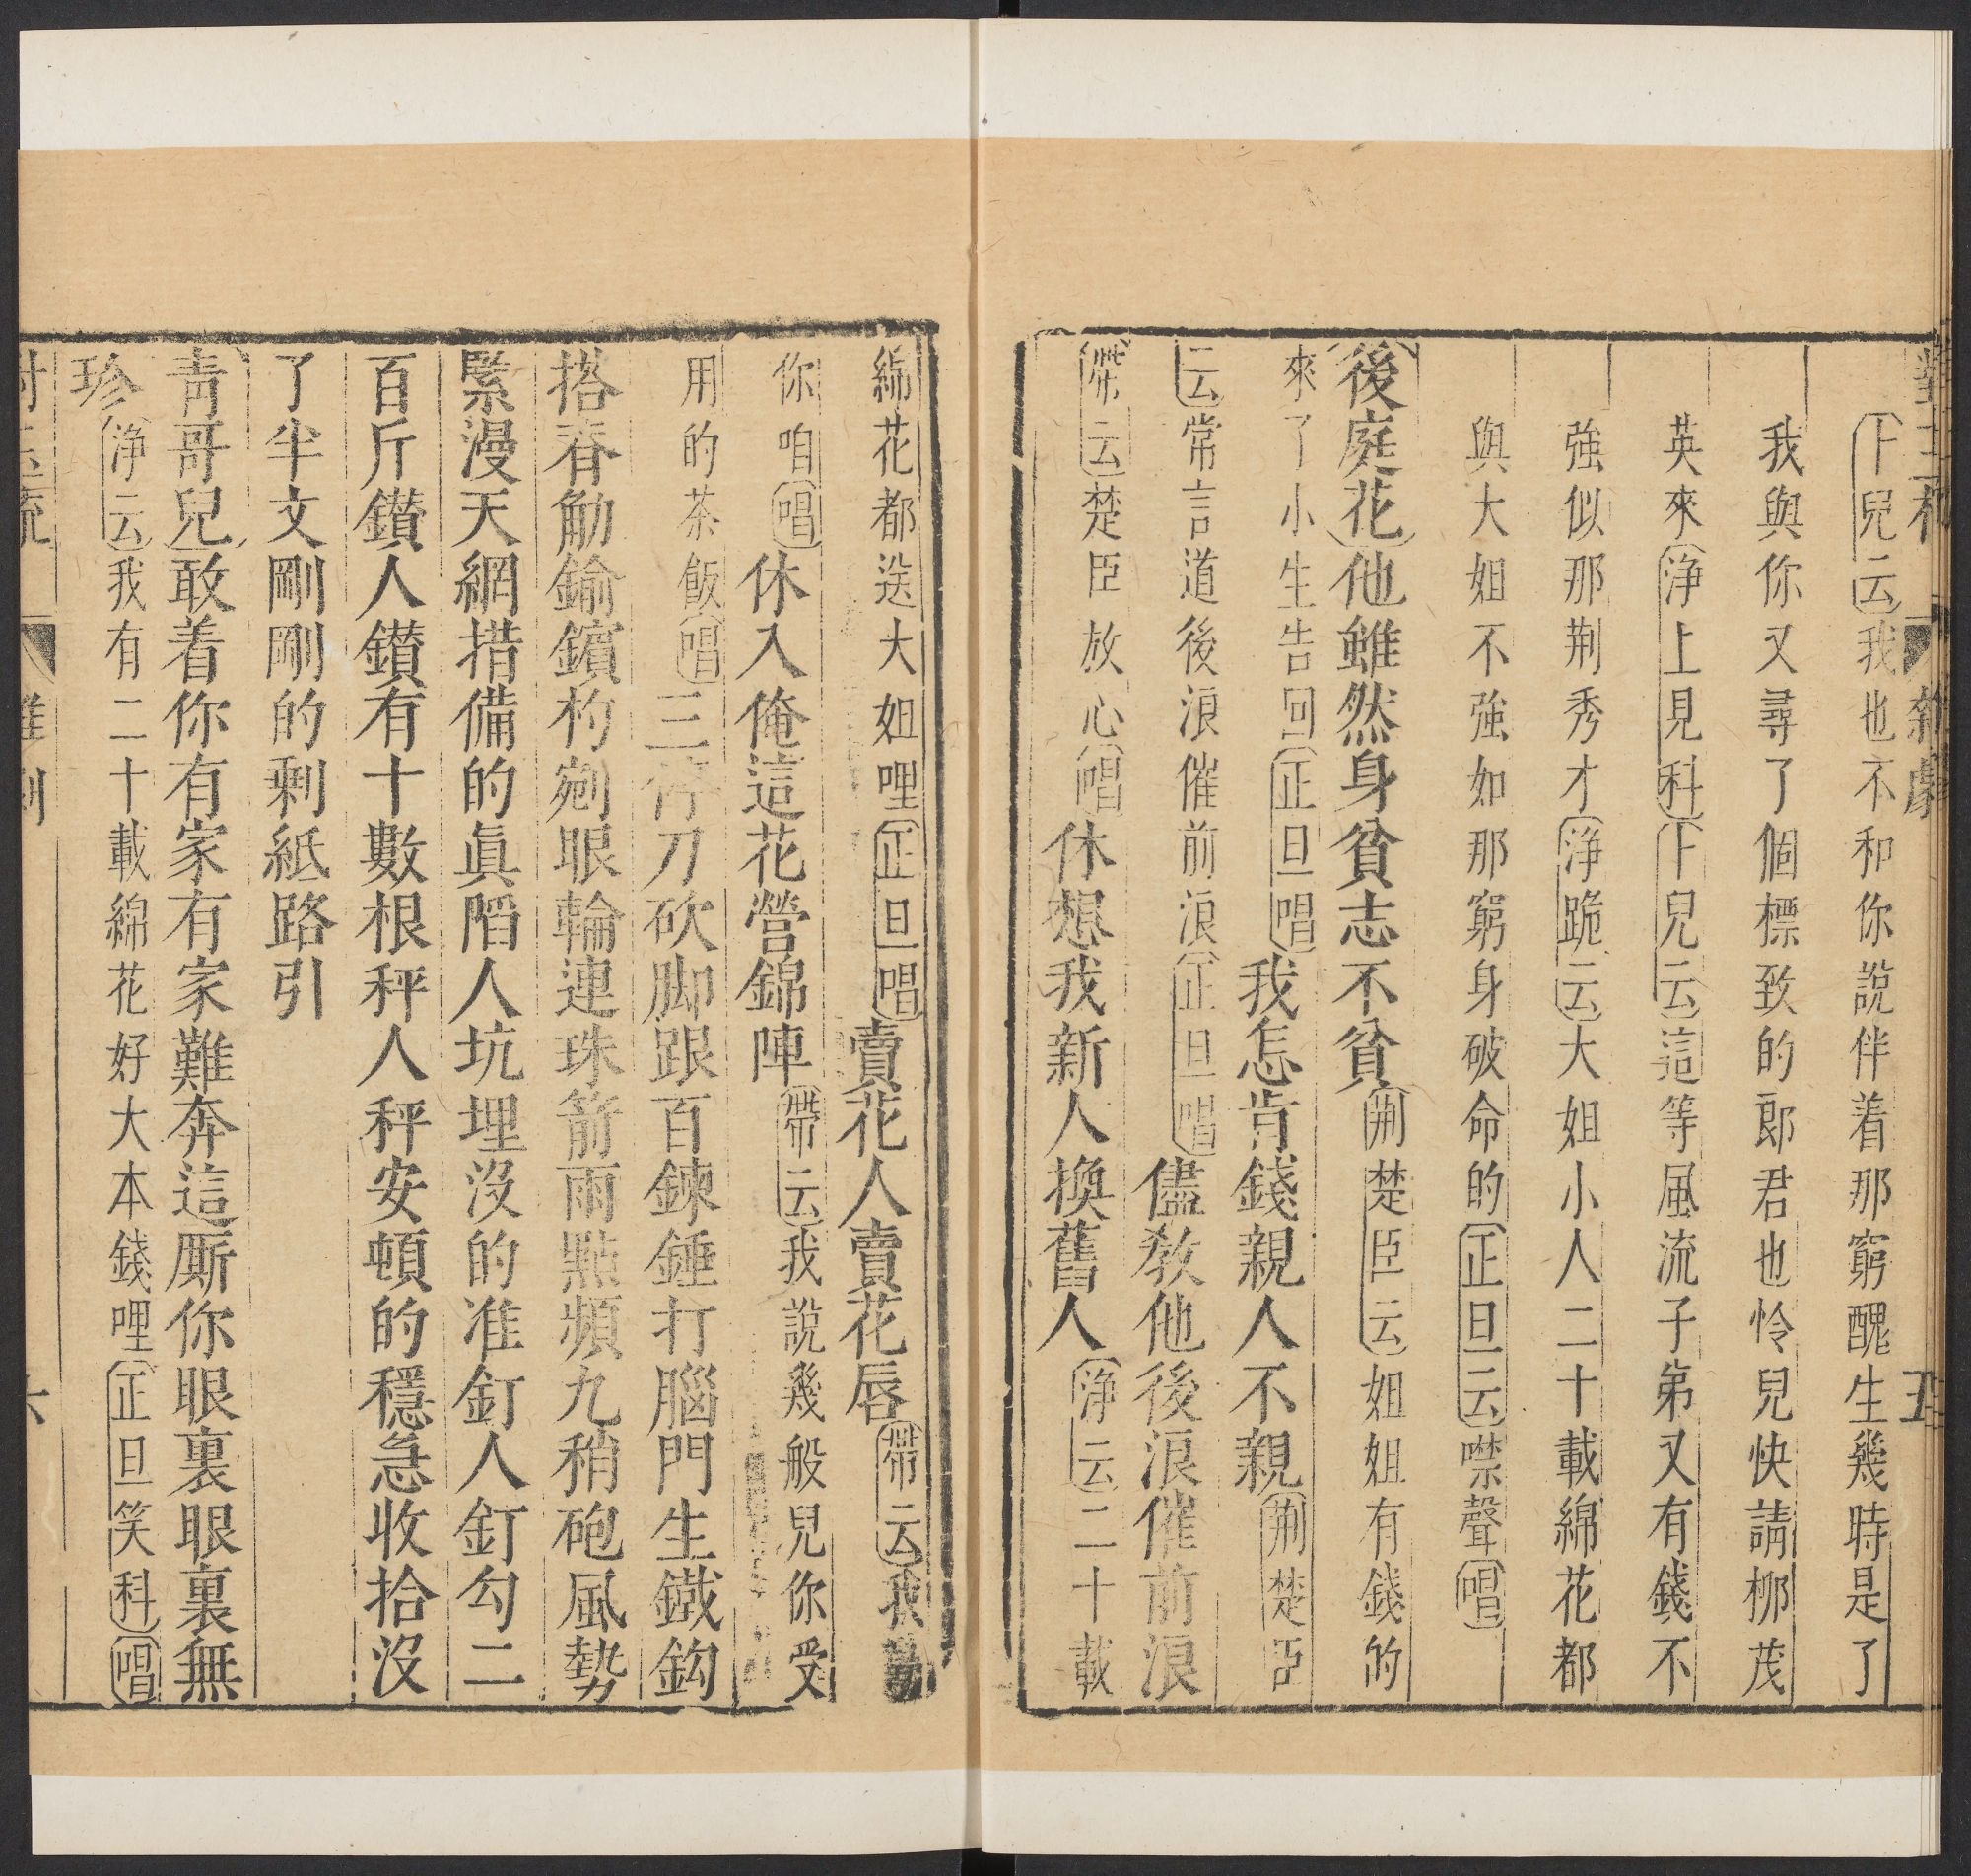 雜劇 五
卜兒云我也不和你說伴着那窮醜生幾時是了
我與你又尋了個標致的郎君也怜兒快請柳茂
英來淨上見科卜兒云這等風流子弟又有錢不
強似那荆秀才淨跪云大姐小人二十載綿花都
與大姐不強如那窮身破命的正旦云噤聲唱
後庭花他雖然身貧志不貧荆楚臣云姐姐有錢的
來了小生告回正旦唱我怎肯錢親人不親荆楚臣
云常言道後浪催前浪正旦唱儘教他後浪催前浪
帶云楚臣放心唱休想我新人換舊人淨云二十載
綿花都送大姐哩正旦唱賣花人賣花唇帶云我勸
你咱唱休入俺這花營錦陣帶云我說幾般兒你受
用的茶飯唱三停刀砍脚跟百鍊錘打腦門生鐵鈎
搭春觔鍮鑌杓剜眼輪連珠箭雨點頻九稍砲風勢
緊漫天網措備的眞陷人坑埋沒的准釘人釘勾二
百斤鑚人鑚有十數根秤人秤安頓的穩急收拾沒
了半文剛剛的剩紙路引
青哥兒敢着你有家有家難奔這厮你眼裏眼裏無
珍淨云我有二十載綿花好大本錢哩正旦笑科唱
六